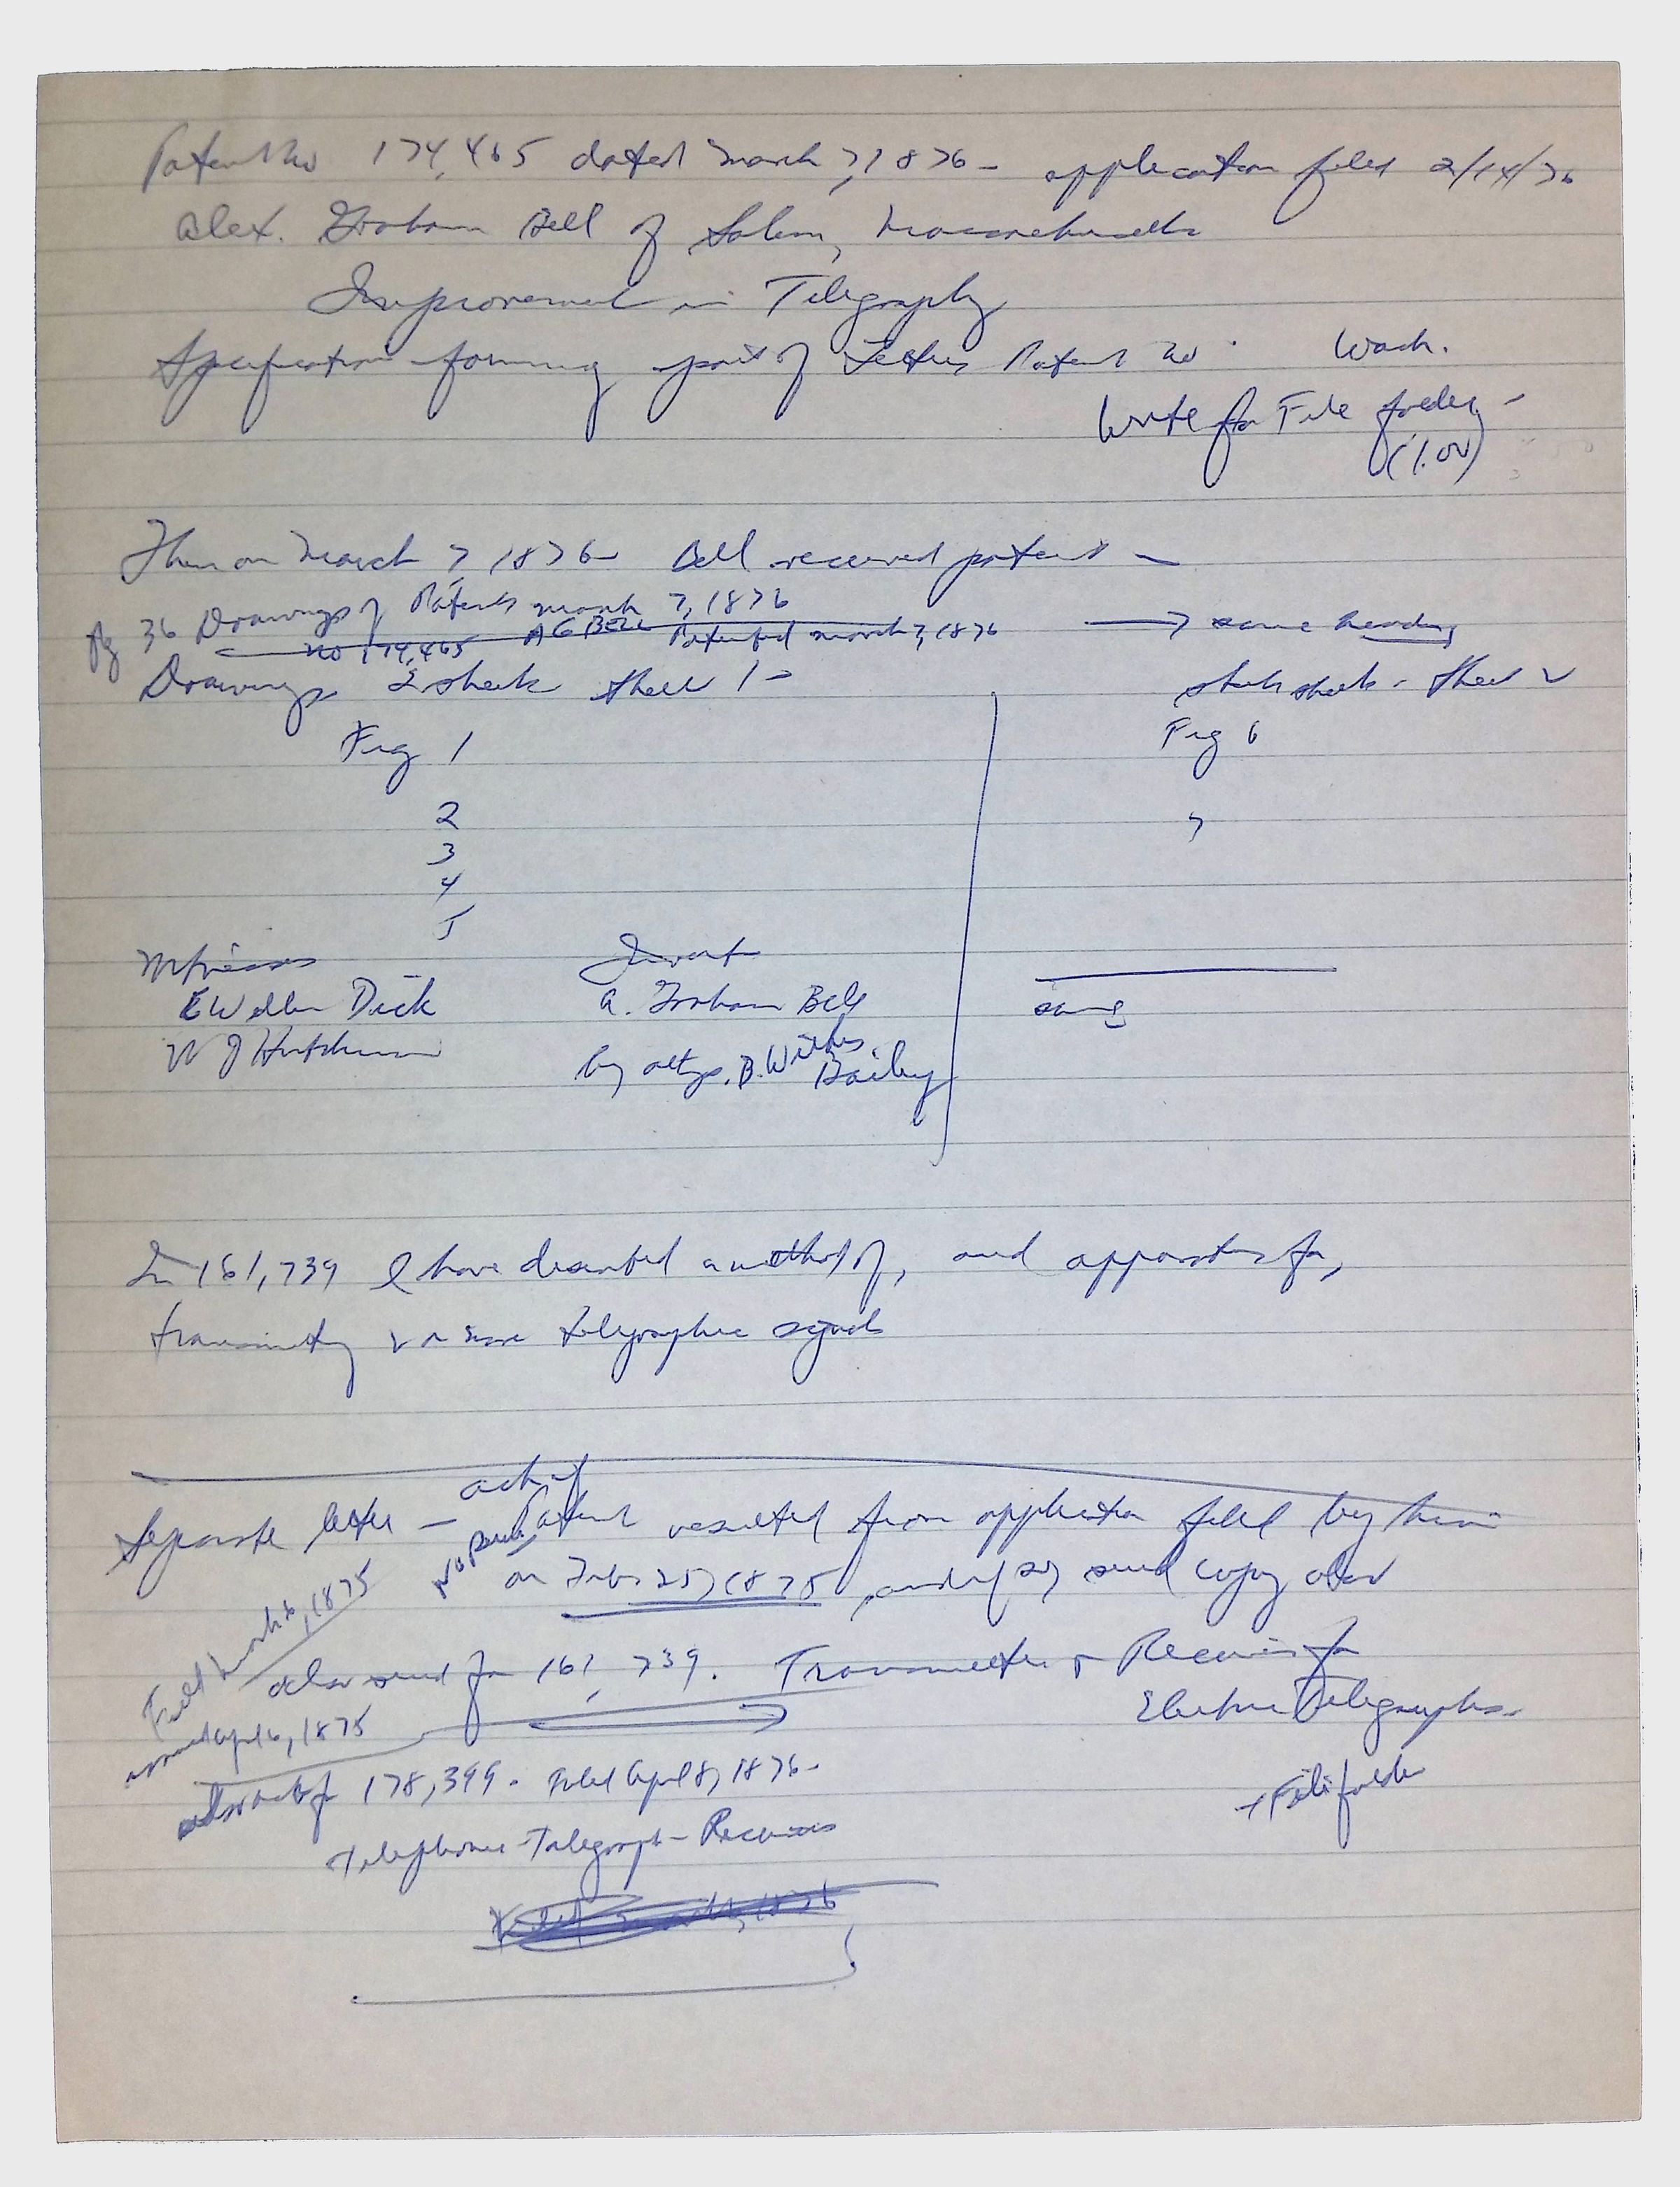 Patent No 174,465 dated March 7, 1876 - application filed 2/14/76
Alex. Graham Bell of Salem, Massachusetts
Improvement in Telegraphy
Specification forming part of Letters Patent No Wash.
Write for File folder -
(1.00)
Then on March 7, 1876 - Bell received patent -
Pg 36 Drawings of Patents March 7, 1876
No 174,465 A G BELL Patented March 7, 1876 → same heading
Drawings 2 sheets sheet 1 -
sheets - sheet 2
Fig 1
Fig 6
2
7
3
4
5
Witnesses
Inventor
Ewell Dick
A. Graham Bell
same
W J Hutchinson
by atty.
Bailey
In 161,739 I have described a method of, and apparatus for,
transmitting & receive telegraphic signals
Separate letter - ask if
Patent resulted from application filed by him
on Feb 25, 1875, and if so, send copy
Filed March 6, 1875
also send for 161,739. Transmitters & Receivers for
Electric Telegraphs.
April 6, 1875
178,399 - Filed April 8, 1876 -
+ File folder
Telephonic-Telegraph-Receivers